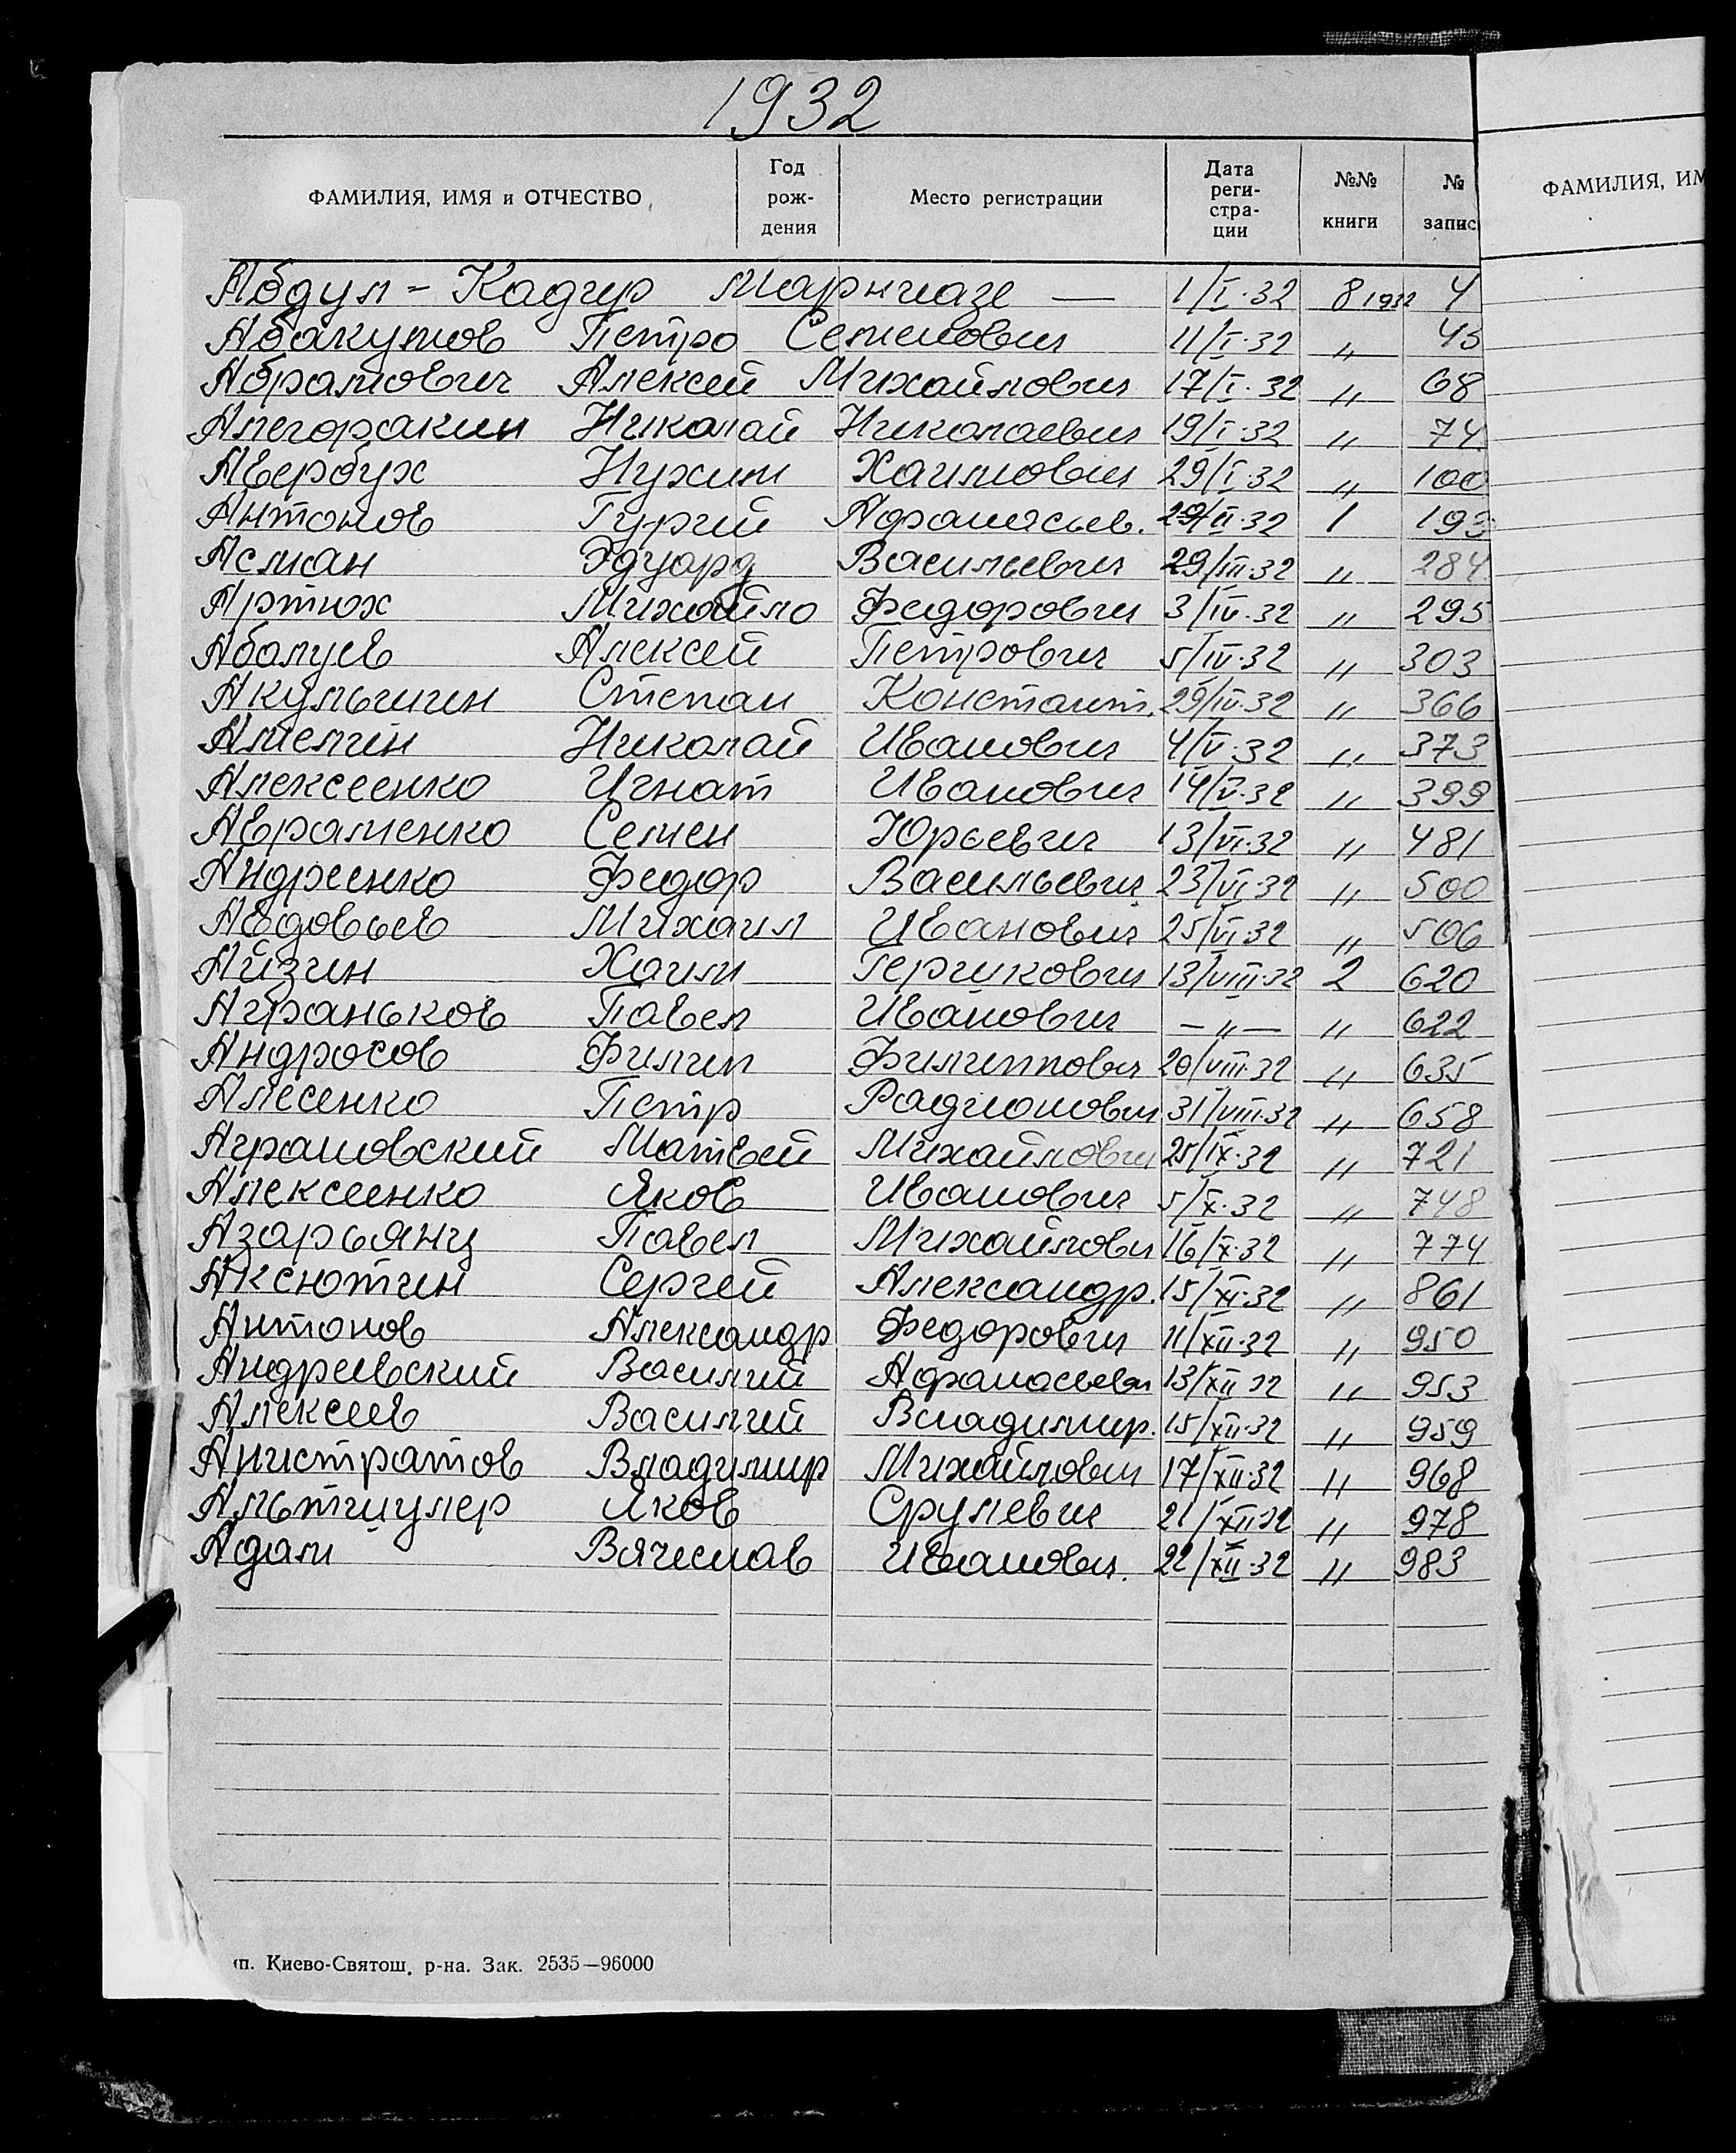 1932
ФАМИЛИЯ, ИМЯ и ОТЧЕСТВО Год рож- дения Место регистрации Дата реги- стра- ции №№ книги № запис
ФАМИЛИЯ, ИМ
Абдул - Кадир — 1/I·32 8 1932 4
Абакумов Петро Семенович 11/I·32 〃 45
Абрамович Алексей Михайлович 17/I·32 〃 68
Николай Николаевич 19/I·32 〃 74
Авербух Нухим Хаимович 29/I·32 〃 100
Антонов Гурий Афанасьев. 29/II·32 1 193
Асман Эдуард Васильевич 29/III·32 〃 284
Артюх Михайло Федорович 3/IV·32 〃 295
Абалуев Алексей Петрович 5/IV·32 〃 303
Акульшин Степан Констант. 29/IV·32 〃 366
Амелин Николай Иванович 4/V·32 〃 373
Алексеенко Игнат Иванович 14/V·32 〃 399
Авраменко Семен Юрьевич 13/VI·32 〃 481
Андреенко Федор Васильевич 23/VI·32 〃 500
Авдовьев Михаил Иванович 25/VI·32 〃 506
Айзин Хаим Гершкович 13/VIII·32 2 620
Аграньков Павел Иванович —〃— 〃 622
Андросов Филип Филиппович 20/VIII·32 〃 635
Алесенко Петр Радионович 31/VIII·32 〃 658
Аграновский Матвей Михайлович 25/IX·32 〃 721
Алексеенко Яков Иванович 5/X·32 〃 748
Азарьянц Павел Михайлович 16/X·32 〃 774
Аксютин Сергей Александр. 15/XI·32 〃 861
Антонов Александр Федорович 11/XII·32 〃 950
Андреевский Василий Афанасьевич 13/XII 32 〃 953
Алексеев Василий Владимир. 15/XII·32 〃 959
Анистратов Владимир Михайлович 17/XII·32 〃 968
Альтшулер Яков Срулевич 21/XII 32 〃 978
Адам Вячеслав Иванович. 22/XII·32 〃 983
ип. Киево-Святош. р-на. Зак. 2535—96000